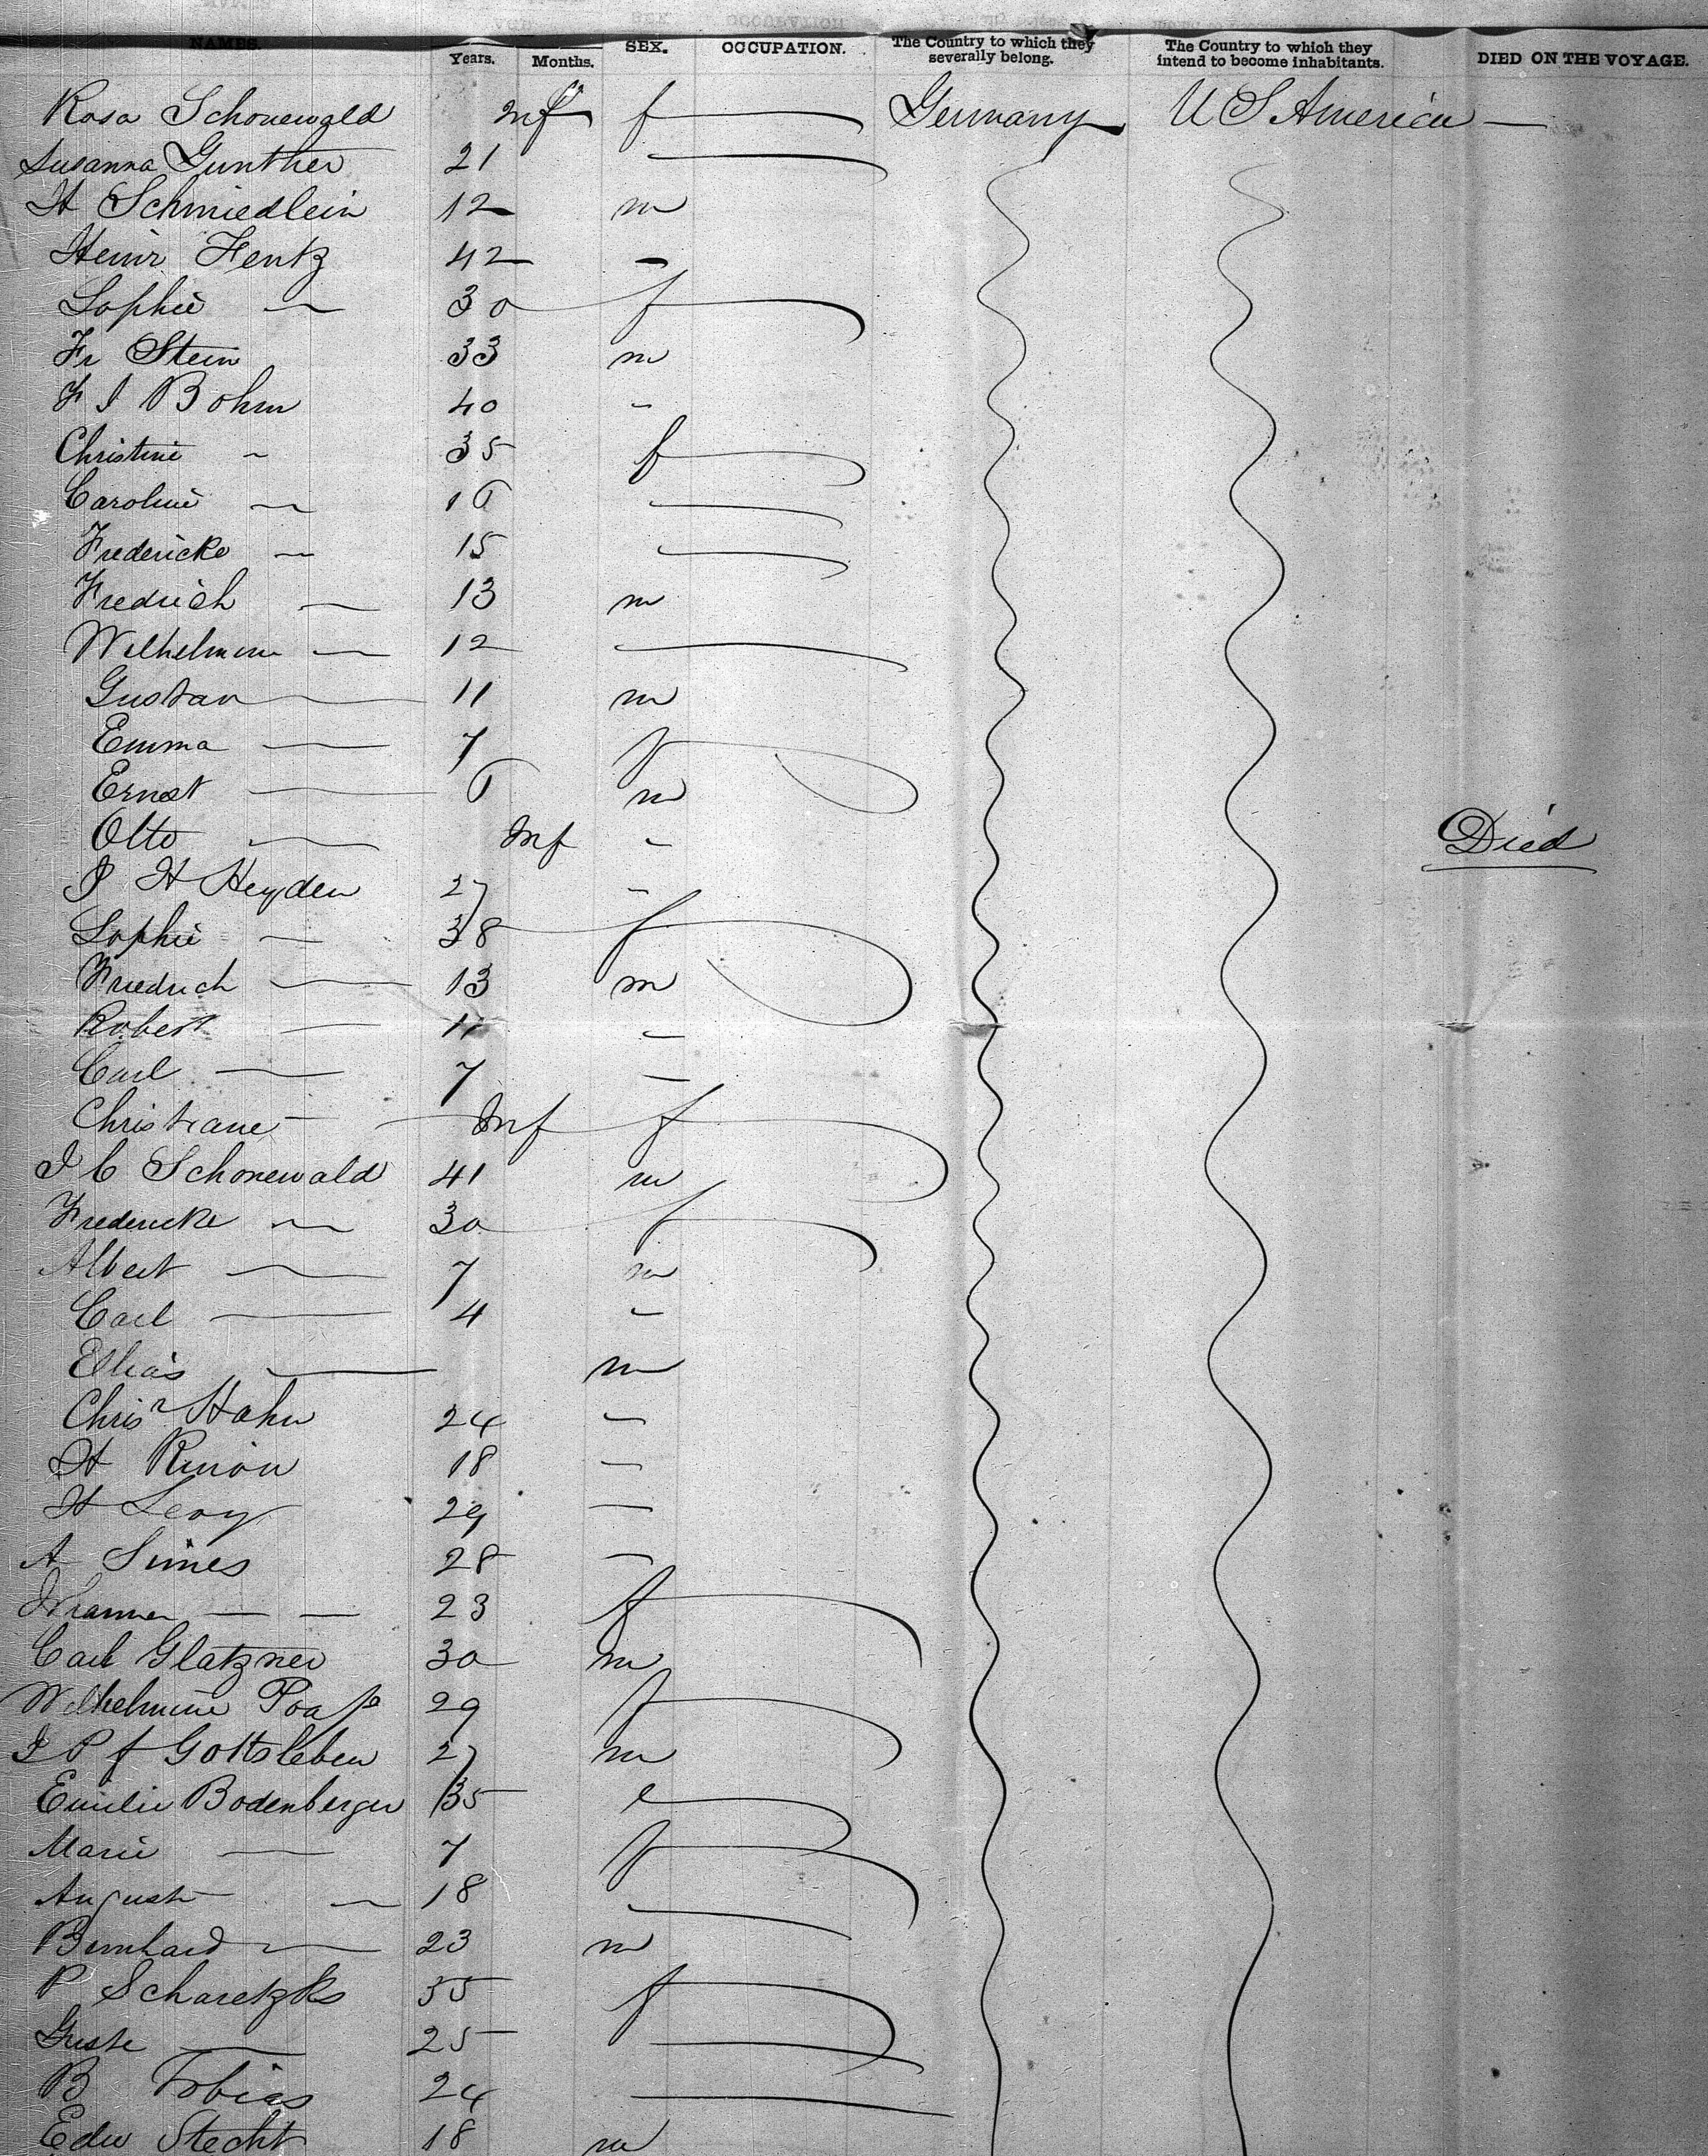 NAMES. Years. Months. SEX. OCCUPATION. The Country to which they severally belong. The Country to which they intend to become inhabitants. DIED ON THE VOYAGE.
Rosa Schonewald Inf f Germany U S America —
Susanna Gunther 21
H Schmiedlein 12 m
Heinr Hentz 42 -
Sophie — 30 f
Fr Stein 33 m
F I Bohm 40 -
Christine - 35 f
Caroline — 16
Fredericke — 15
Fredrich — 13 m
Wilhelmine — 12
Gustav — 11 m
Emma — 7 f
Ernst — 6 m
Otto — Inf - Died
I H Heyden 27 -
Sophie — 38 f
Friedrich — 13 m
Robert — 11 -
Carl — 7 -
Christiane — Inf f
I C Schonewald 41 m
Fredericke — 30 f
Albert — 7 m
Carl — 4 -
Elias — m
Chris Hahn 24 -
H 18 -
H Levy 29 -
A Simes 28 -
— — 23 f
Carl Glatzner 30 m
Wilhelmine 29 f
I P f Gottsleben 27 m
Emilie Bodenberger 35
Marie — 7 f
August — 18
Bernhard — 23 m
P 35 f
Guste — 25
B Tobias 24
Edw Stecht 18 m